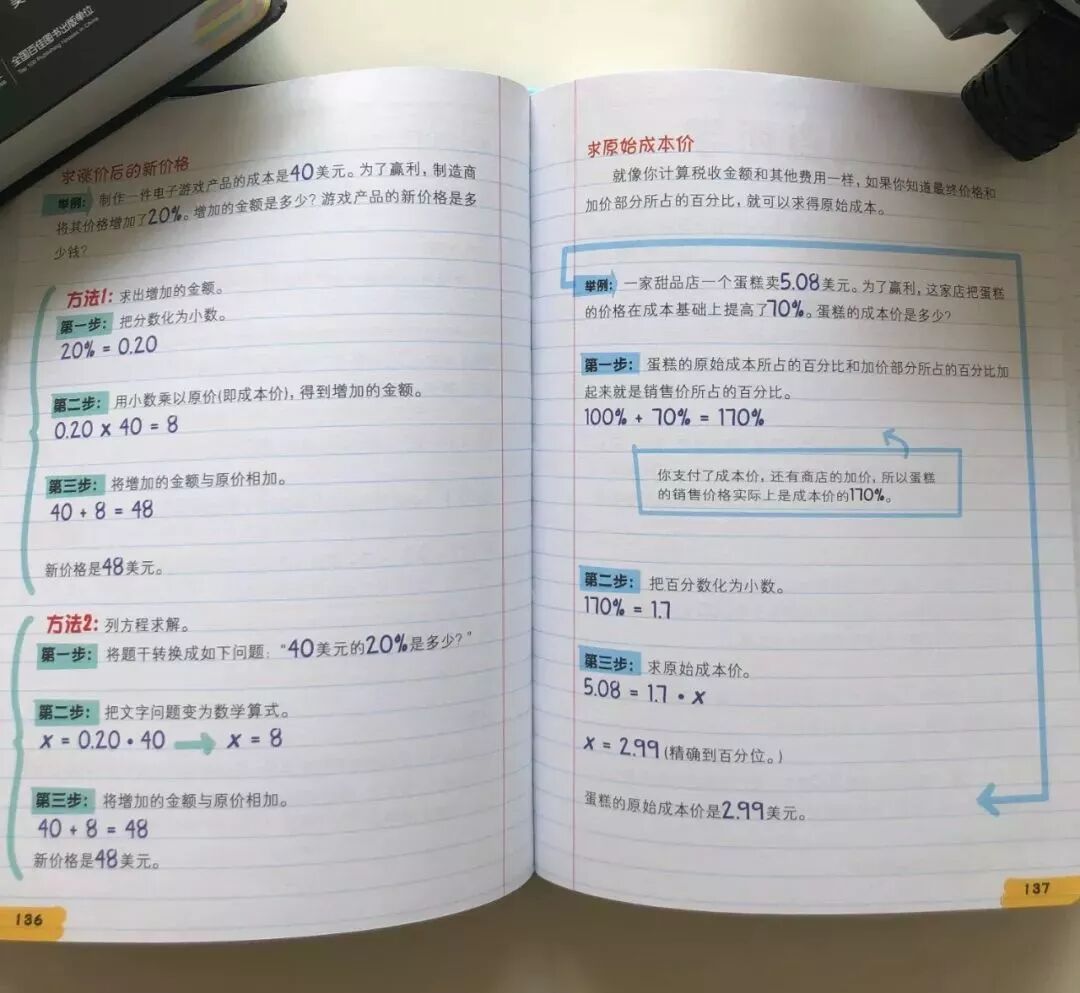 全国百佳图书出版单位
Top 100 Publishing Houses in China
求涨价后的新价格
举例: 制作一件电子游戏产品的成本是40美元。为了赢利，制造商
将其价格增加了20%。增加的金额是多少？游戏产品的新价格是多
少钱？
方法1: 求出增加的金额。
第一步: 把分数化为小数。
20% = 0.20
第二步: 用小数乘以原价(即成本价)，得到增加的金额。
0.20 x 40 = 8
第三步: 将增加的金额与原价相加。
40 + 8 = 48
新价格是48美元。
方法2: 列方程求解。
第一步: 将题干转换成如下问题：“40美元的20%是多少？”
第二步: 把文字问题变为数学算式。
x = 0.20 • 40 → x = 8
第三步: 将增加的金额与原价相加。
40 + 8 = 48
新价格是48美元。
136
求原始成本价
就像你计算税收金额和其他费用一样，如果你知道最终价格和
加价部分所占的百分比，就可以求得原始成本。
举例: 一家甜品店一个蛋糕卖5.08美元。为了赢利，这家店把蛋糕
的价格在成本基础上提高了70%。蛋糕的成本价是多少？
第一步: 蛋糕的原始成本所占的百分比和加价部分所占的百分比加
起来就是销售价所占的百分比。
100% + 70% = 170%
你支付了成本价，还有商店的加价，所以蛋糕
的销售价格实际上是成本价的170%。
第二步: 把百分数化为小数。
170% = 1.7
第三步: 求原始成本价。
5.08 = 1.7 • x
x = 2.99 (精确到百分位。)
蛋糕的原始成本价是2.99美元。
137